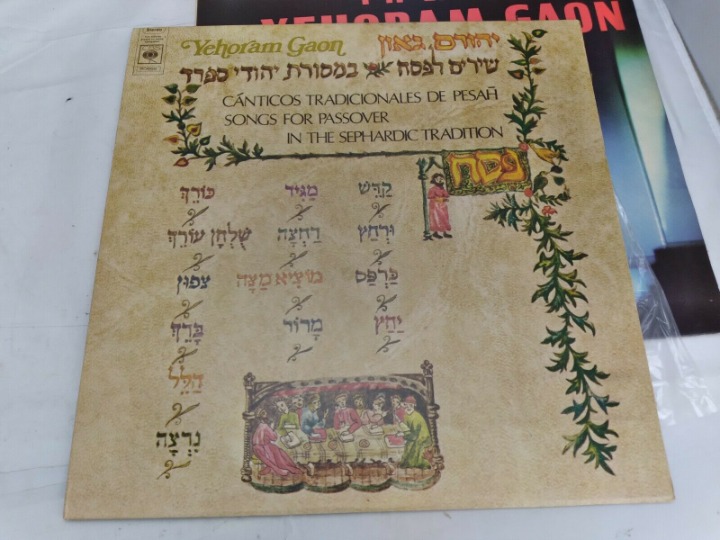 YEHORAM GAON
Stereo
CBS
Yehoram Gaon יהורם גאון
שירים לפסח במסורת יהודי ספרד
CÁNTICOS TRADICIONALES DE PESAĦ
SONGS FOR PASSOVER
IN THE SEPHARDIC TRADITION
פסח
קַדֵּשׁ
וּרְחַץ
כַּרְפַּס
יַחַץ
מַגִּיד
רַחְצָה
מוֹצִיא מַצָּה
מָרוֹר
כּוֹרֵךְ
שֻׁלְחָן עוֹרֵךְ
צָפוּן
בָּרֵךְ
הַלֵּל
נִרְצָה